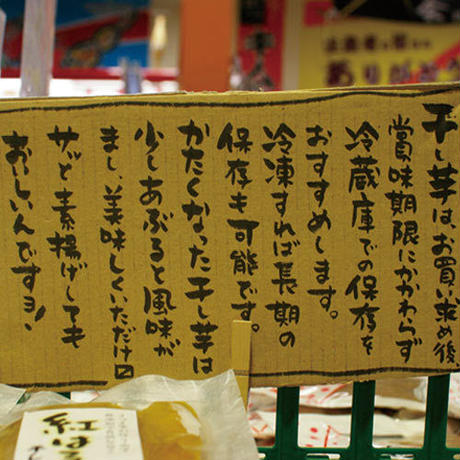 干し芋は、お買い求め後、
賞味期限にかかわらず
冷蔵庫での保存を
おすすめします。
冷凍すれば長期の
保存も可能です。
かたくなった干し芋は
少しあぶると風味が
まし、美味しくいただけ〼
サッと素揚げしても
おいしいんですョ!
紅はる
ありが